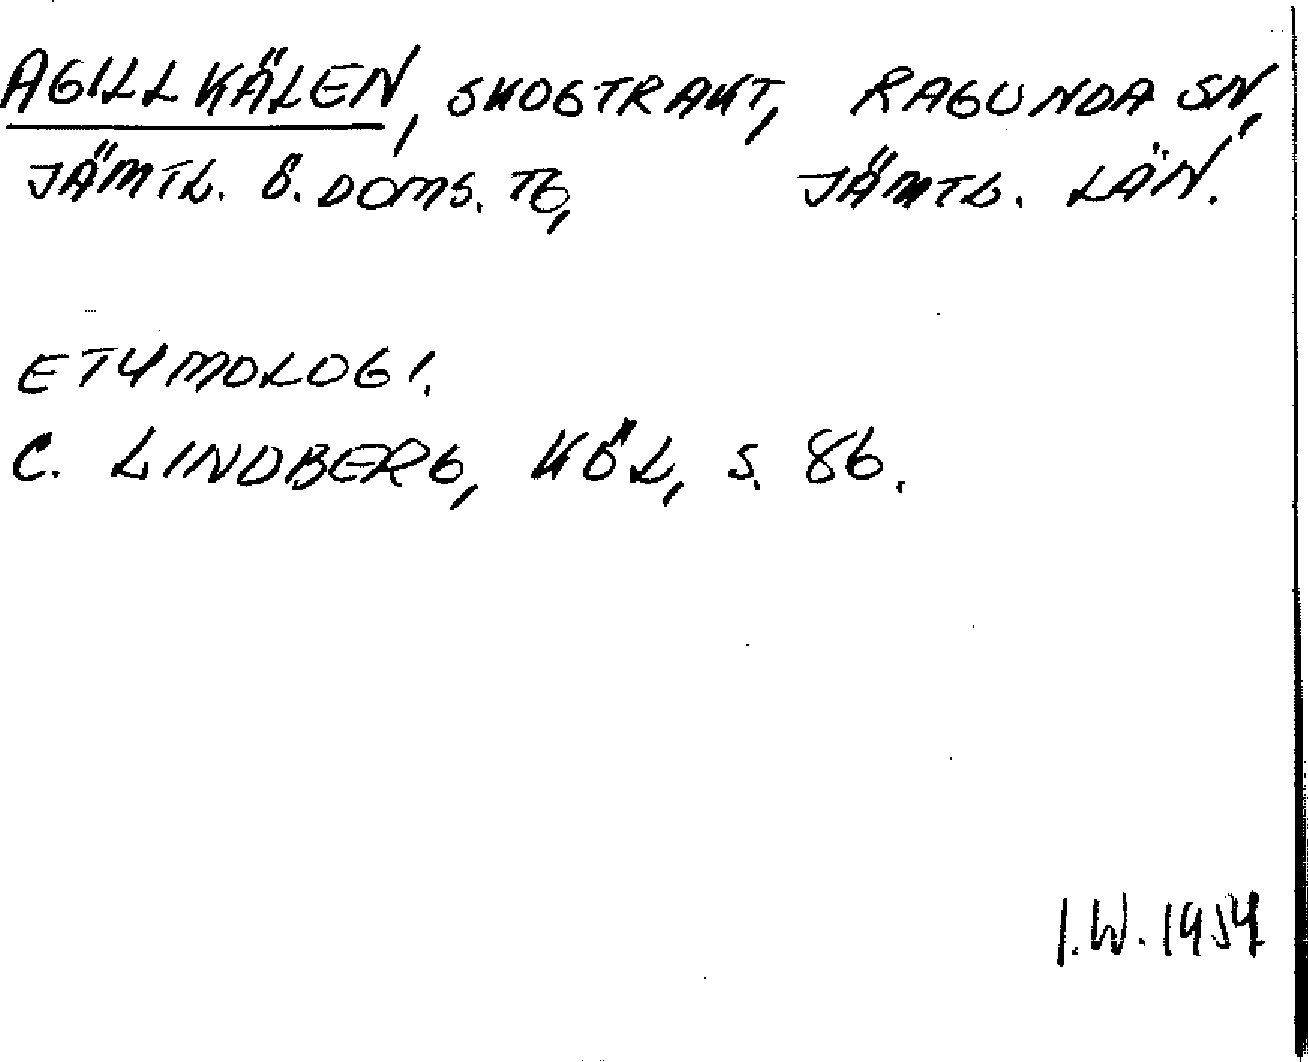 AGILLKÄLEN, SKOGTRAKT, RAGUNDA SN,
JÄMTL. Ö. DOMS. TG, JÄMTL. LÄN.
ETYMOLOGI.
C. LINDBERG, KÖL, S. 86.
I.W. 1954